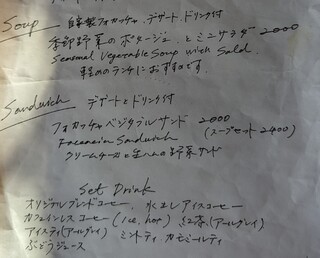 Soup 自家製フォカッチャ、デザート、ドリンク付
季節野菜のポタージュとミニサラダ 2000
Seasonal Vegetable Soup with Salad.
軽めのランチにおすすめです
Sandwich デザートとドリンク付
フォカッチャベジタブルサンド 2000
(スープセット 2400)
Sandwich
クリームチーズと生ハムの野菜サンド
Set Drink
オリジナルブレンドコーヒー、水出しアイスコーヒー
カフェインレスコーヒー (ice, hot) 紅茶 (アールグレイ)
アイスティ (アールグレイ) ミントティ カモミールティ
ぶどうジュース